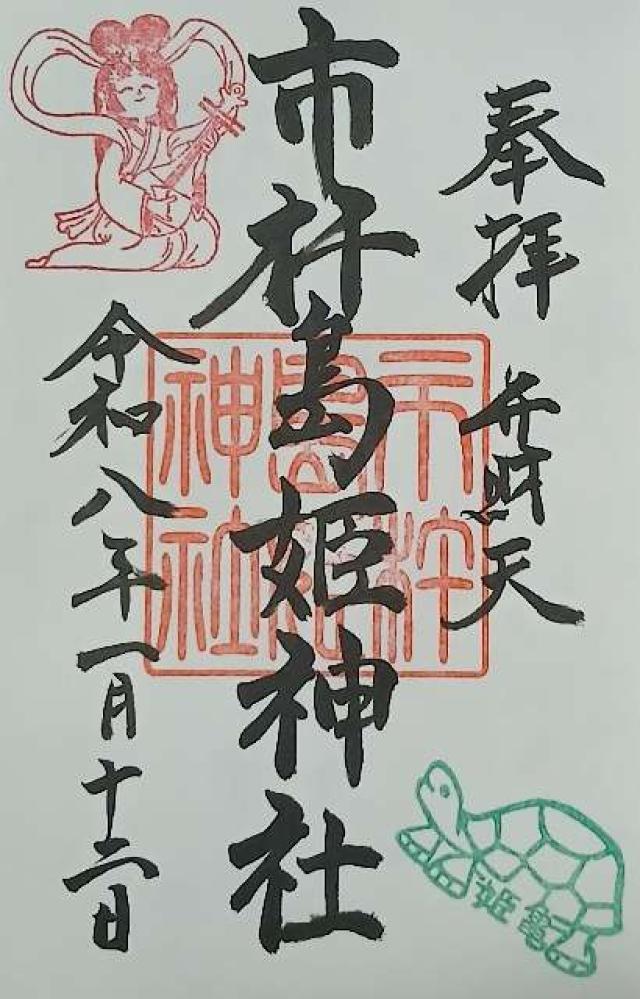 奉拝
弁財天
市杵島姫神社
市杵
島姫
神社
令和八年一月十二日
姫亀